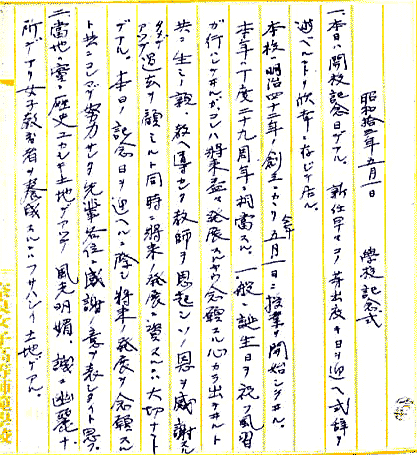 昭和拾三年五月一日 學校記念式
一、本日ハ開校記念日デアル。新任早々コノ芽出度キ日ヲ迎ヘ式辞ヲ
述ベルコトヲ欣幸ニ存じテ居ル。
本校ハ明治四十二年ノ創立ニカヽリ五月一日ニ授業ヲ開始シタノデ
本年ハ丁度二十九周年ニ相當スル。一般ニ誕生日ヲ祝フ風習
ガ行ハレテヰルガコレハ将来益々発展スルヤウ念願スル心カラ出テヰルト
共ニ生ミノ親、教ヘ導セタ教師ヲ思起シソノ恩ヲ感謝スル
過去ヲ顧ミルト同時ニ将来ノ発展ニ資スルコトハ大切ナコト
デアル。本日ノ記念日ヲ迎ヘルニ際シ将来ノ発展ヲ念願スル
ト共ニコレマデ努力サレタ先輩各位ニ感謝ノ意ヲ表シタイト思フ。
二、當地ハ古ク歴史ユカシキ土地デアツテ風光明媚、誠ニ幽麗ナ
所デアリ女子教育者ヲ養成スルニハフサハシイ土地デアル。
奈良女子高等師範學校